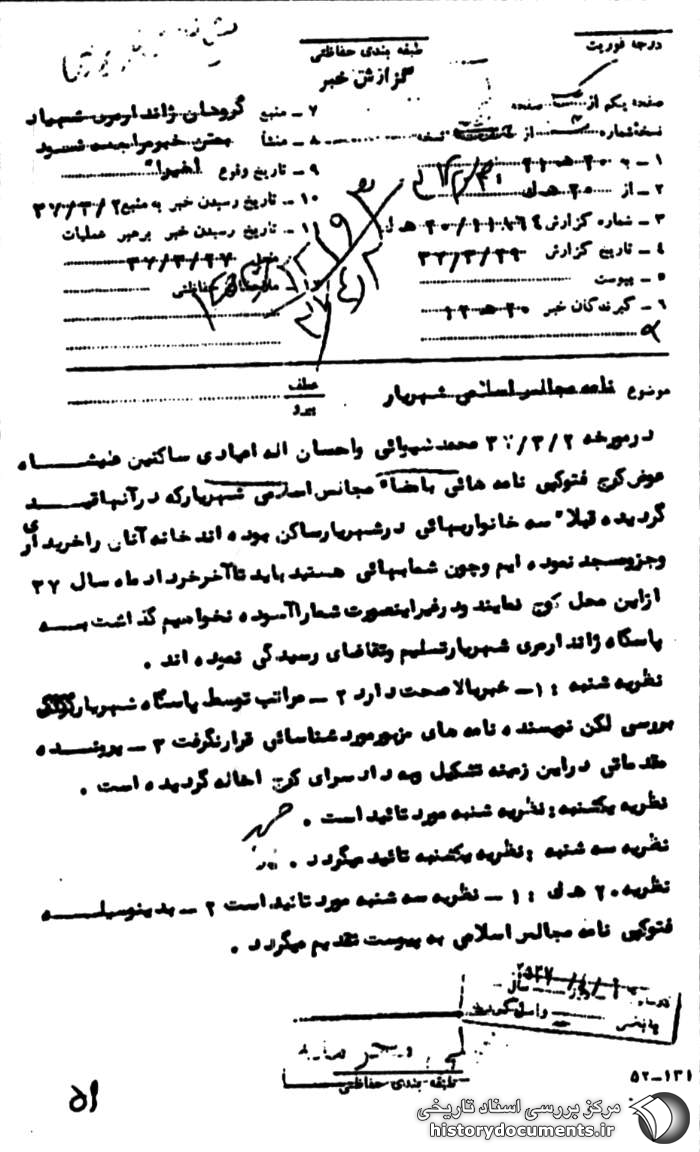 درجه فوریت
طبقه بندی حفاظتی
گزارش خبر
صفحه یکم از صفحه
نسخه شماره از نسخه
۱ - به ۲۰ ه‍ ۳۱۰
۲ - از ۲۰ ه‍ ک
۳ - شماره گزارش ۲۰/۱۱۸۶۴ ه‍ ک
۴ - تاریخ گزارش ۳۷/۳/۲۹
۵ - پیوست
۶ - گیرندگان خبر ۲۰ ه‍ ۱۲
۷ - منبع گروهان ژاندارمری شهریار
۸ - منشأ بمتن خبر مراجعه شود
۹ - تاریخ وقوع اخیرا"
۱۰ - تاریخ رسیدن خبر به منبع ۳۷/۳/۲
۱۱ - تاریخ رسیدن خبر برهبر عملیات
محل ۳۷/۳/۲۷
۱۲ - ملاحظات حفاظتی
موضوع نامه مجالس اسلامی شهریار
عطف
پیرو
در مورخه ۳۷/۳/۲ محمد شهبائی و احسان اله امهادی ساکنین علیشاه
عوض کرج فتوکپی نامه هائی بامضاء مجالس اسلامی شهریار که در آنها قید
گردیده قبلا" سه خانوار بهائی در شهریار ساکن بوده اند خانه آنان را خریداری
و جزو مسجد نموده ایم و چون شما بهائی هستید باید تا آخر خرداد ماه سال ۳۷
از این محل کوچ نمایند و در غیر اینصورت شما را آسوده نخواهیم گذاشت به
پاسگاه ژاندارمری شهریار تسلیم و تقاضای رسیدگی نموده اند .
نظریه شنبه : ۱- خبر بالا صحت دارد ۲- مراتب توسط پاسگاه شهریار
بررسی لکن نویسنده نامه های مزبور مورد شناسائی قرار نگرفت ۳- پرونده
مقدماتی در این زمینه تشکیل و به دادسرای کرج احاله گردیده است .
نظریه یکشنبه : نظریه شنبه مورد تائید است .
نظریه سه شنبه : نظریه یکشنبه تائید میگردد .
نظریه ۲۰ ه‍ ک : ۱- نظریه سه شنبه مورد تائید است ۲- بدینوسیله
فتوکپی نامه مجالس اسلامی به پیوست تقدیم میگردد .
روز سال ۲۵۳۷
واصل گردید
طبقه بندی حفاظتی
۵۲-۱۳۱
۵۱
مرکز بررسی اسناد تاریخی
historydocuments.ir